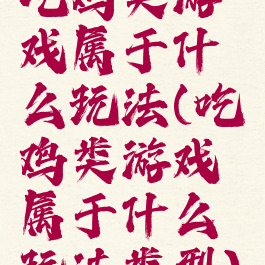 吃鸡类游
戏属于什
么玩法(吃
鸡类游戏
属于什么
玩法类型)